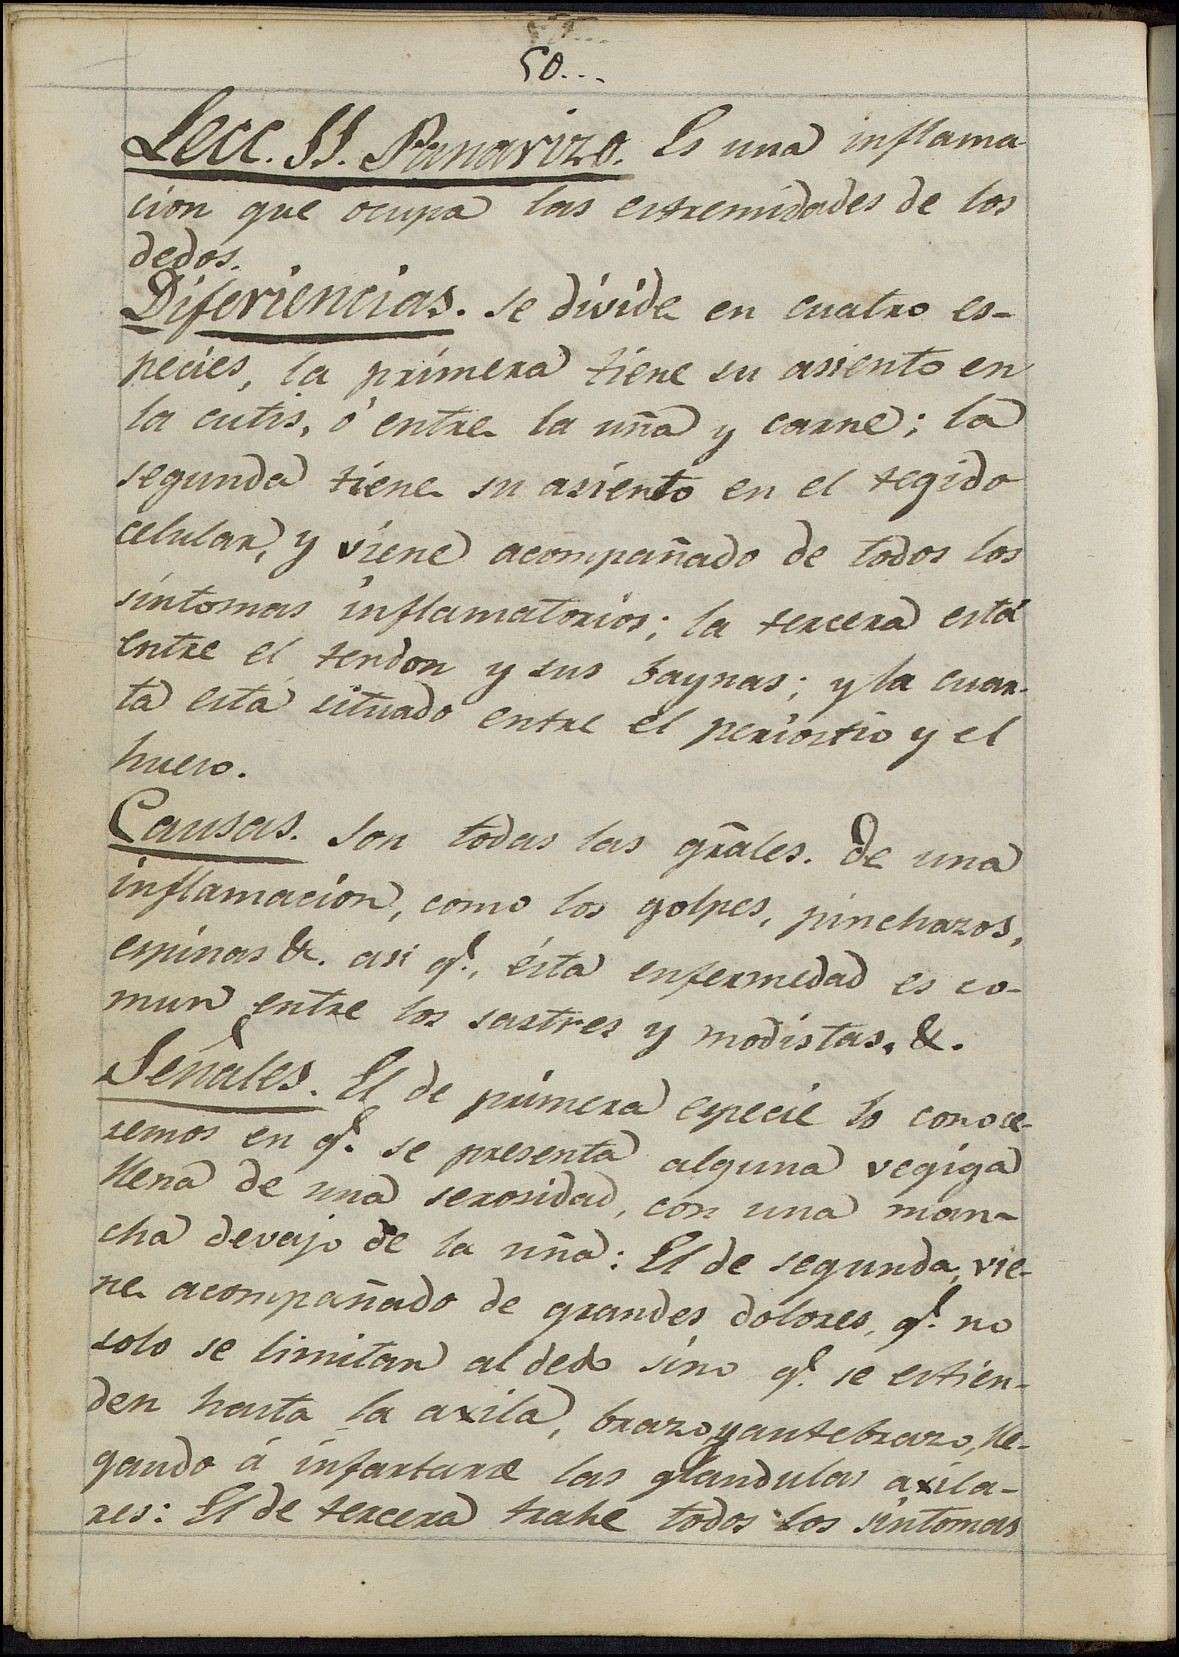 50...
Lecc. 11. Panarizo. Es una inflama
cion que ocupa las estremidades de los
dedos.
Diferiencias. se divide en cuatro es-
pecies, la primera tiene su asiento en
la cutis, ó entre la uña y carne; la
segunda tiene su asiento en el tegido
celular, y viene acompañado de todos los
sintomas inflamatorios; la tercera está
entre el tendon y sus baynas; y la cuar-
ta está situado entre el periostio y el
hueso.
Causas. Son todas las gr̃ales. de una
inflamacion, como los golpes, pinchazos,
espinas &. asi q.e, ésta enfermedad es co-
mun entre los sastres y modistas, &.
Señales. El de primera especie lo conoce-
remos en q.e se presenta alguna vegiga
llena de una serosidad, con una man-
cha devajo de la uña: El de segunda, vie-
ne acompañado de grandes dolores, q.e no
solo se limitan al dedo sino q.e se estien-
den hasta la axila, brazo y antebrazo, lle-
gando á infartarse las glandulas axila-
res: El de tercera trahe todos los sintomas